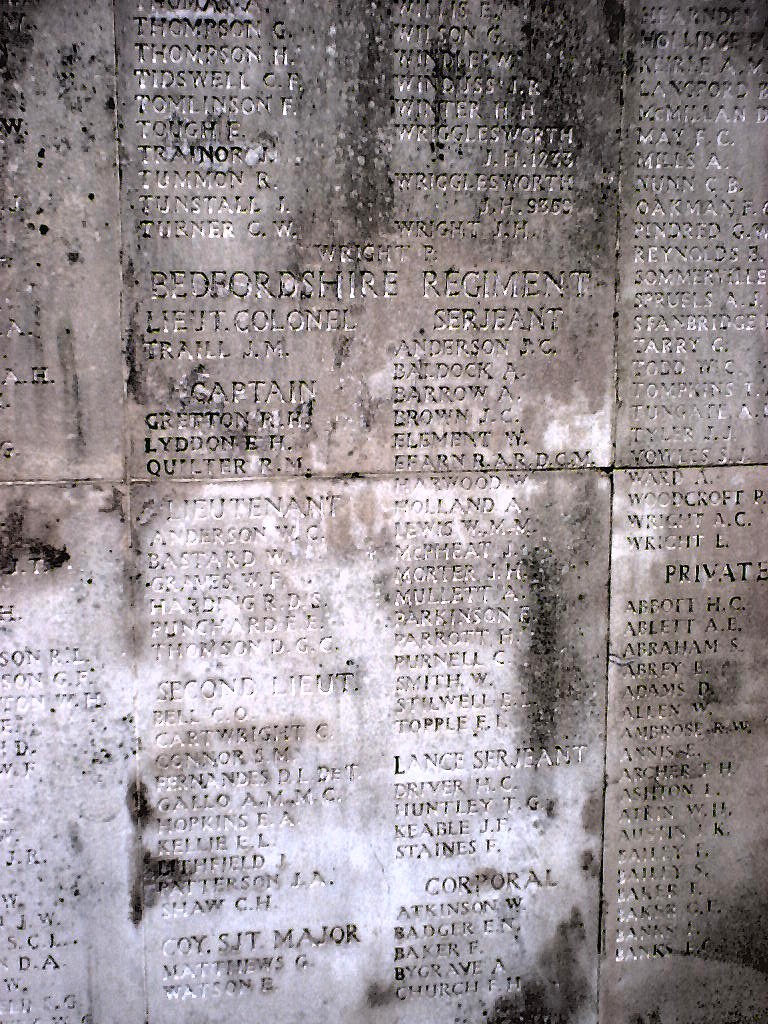 THOMPSON G.
THOMPSON H.
TIDSWELL C.F.
TOMLINSON F.
TOUGH E.
TRAINOR
TUMMON R.
TUNSTALL J.
TURNER C. W.
WILLIS E.
WILSON G.
WINDLE W.
WINDUSS J.R.
WINTER H. H.
WRIGGLESWORTH
J.H. 1233
WRIGGLESWORTH
J.H. 9359
WRIGHT J.H.
WRIGHT P.
BEDFORDSHIRE REGIMENT
LIEUT. COLONEL
TRAILL J.M.
CAPTAIN
GRETTON R.H.
LYDDON E.H.
QUILTER R.M.
LIEUTENANT
ANDERSON W.C.
BASTARD W.
GRAVES W.F.
HARDING R.D.S.
PUNCHARD F.E.
THOMSON D.G.C.
SECOND LIEUT.
BELL C.O.
CARTWRIGHT C.
CONNOR S.M.
FERNANDES D.L. DE T.
GALLO A.M.M.C.
HOPKINS E.A.
KELLIE E.L.
LITHFIELD J.
PATTERSON J.A.
SHAW C.H.
COY. SJT. MAJOR
MATTHEWS G.
WATSON E.
SERJEANT
ANDERSON J.G.
BALDOCK A.
BARROW A.
BROWN J.C.
ELEMENT W.
FEARN R.A.R. D.C.M.
HARWOOD W.
HOLLAND A.
LEWIS W.M.M.
MCPHEAT J.
MORTER J.H.
MULLETT A.
PARKINSON
PARROTT H.
PURNELL C.
SMITH. W.
STILWELL
TOPPLE F.L.
LANCE SERJEANT
DRIVER H.C.
HUNTLEY T.G.
KEABLE J.F.
STAINES F.
CORPORAL
ATKINSON W.
BADGER E.N.
BAKER F.
BYGRAVE A.
CHURCH F.H.
HOLLIDGE
KEIRLE A.M.
LANGFORD
MCMILLAN D.
MAY F.C.
MILLS A.
NUNN C.B.
OAKMAN F.
PINDRED G.W.
REYNOLDS
SOMMERVILLE
SPRUELS A.J.
STANBRIDGE
TARRY G.
TODD W.C.
TOMPKINS
TUNGATE A.
TYLER J.J.
VOWLES S.J.
WARD A.
WOODCROFT P.
WRIGHT A.C.
WRIGHT L.
PRIVATE
ABBOTT H.C.
ABLETT A.E.
ABRAHAM S.
ABREY E.
ADAMS D.
ALLEN W.
AMBROSE R.W.
ANNIS E.
ARCHER H.
ASHTON
ATKIN W.H.
AUSTIN K.
BAILEY
BAILEY S.
BAKER F.
BAKER G.F.
BANKS
BANKS